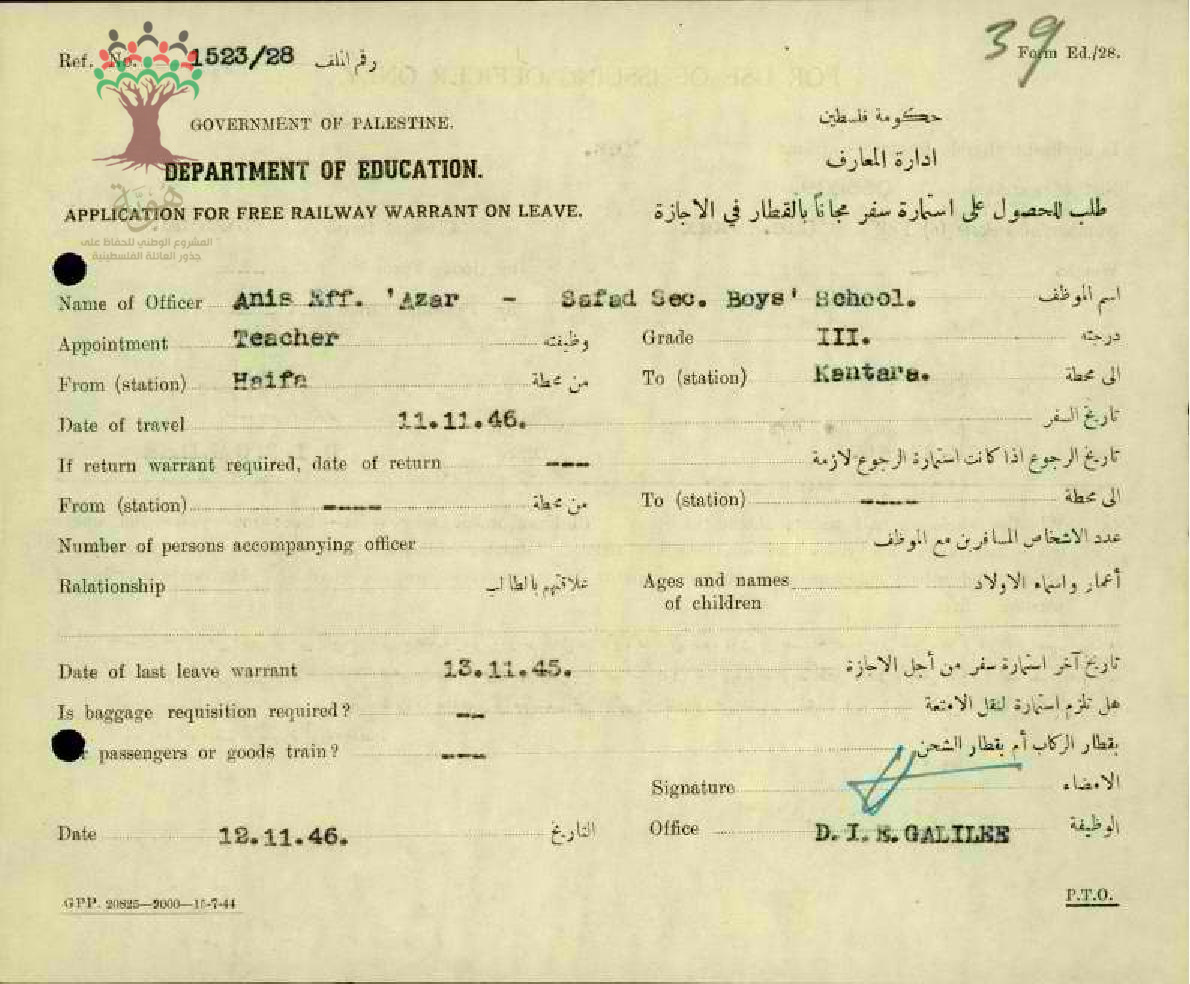 Ref. No. 1523/28 رقم الملف
39
Form Ed./28.
GOVERNMENT OF PALESTINE.
حكومة فلسطين
DEPARTMENT OF EDUCATION.
ادارة المعارف
APPLICATION FOR FREE RAILWAY WARRANT ON LEAVE.
طلب للحصول على استمارة سفر مجاناً بالقطار في الاجازة
هُوِيَّة
المشروع الوطني للحفاظ على
جذور العائلة الفلسطينية
Name of Officer Anis Eff. 'Azar - Safad Sec. Boys' School. اسم الموظف
Appointment Teacher وظيفته Grade III. درجته
From (station) Haifa من محطة To (station) Kantara. الى محطة
Date of travel 11.11.46. تاريخ السفر
If return warrant required, date of return --- تاريخ الرجوع اذا كانت استمارة الرجوع لازمة
From (station) ---- من محطة To (station) ---- الى محطة
Number of persons accompanying officer عدد الاشخاص المسافرين مع الموظف
Ralationship علاقتهم بالطالب Ages and names أعمار واسماء الاولاد
of children
Date of last leave warrant 13.11.45. تاريخ آخر استمارة سفر من أجل الاجازة
Is baggage requisition required? -- هل تلزم استمارة لنقل الامتعة
passengers or goods train? --- بقطار الركاب أم بقطار الشحن
Signature الامضاء
Date 12.11.46. التاريخ Office D.I.E.GALILEE الوظيفة
GPP. 20825—9000—15-7-44
P.T.O.